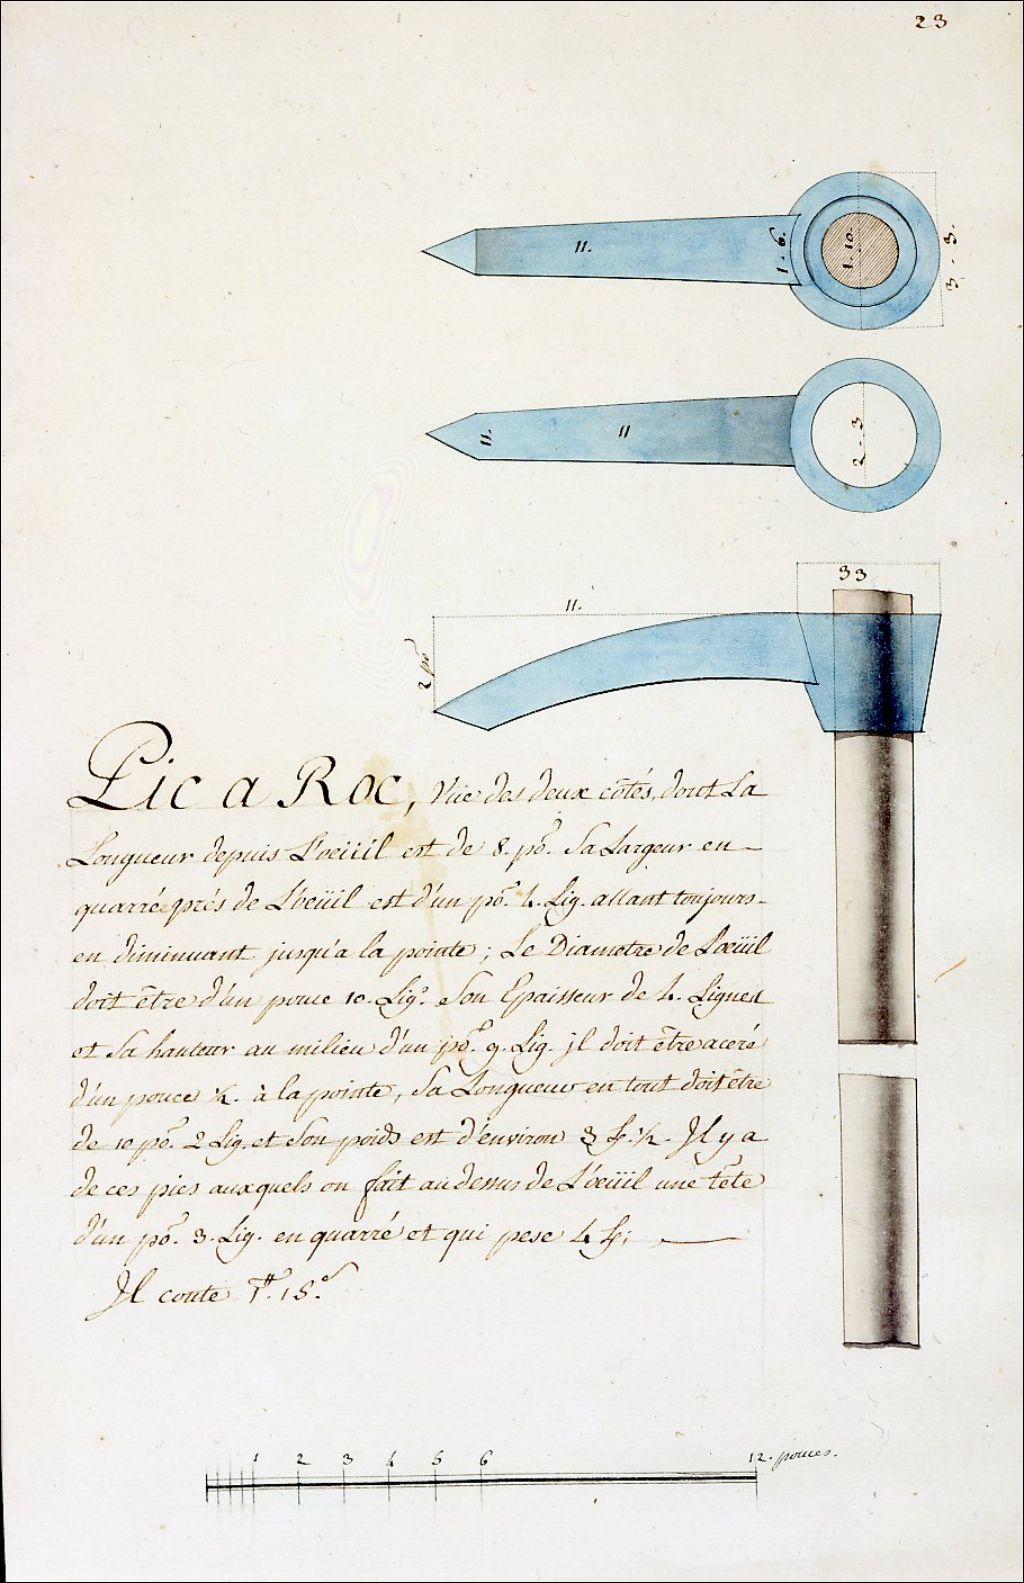 23
11.
1. 6.
1. 10.
3. 3.
11.
11
2. 3
33
11.
2 po
Pic a Roc, Vüe des deux côtés, dont La
Longueur depuis L'oeüil est de 8. po. Sa Largeur en
quarré près de L'oeüil est d'un po. 4. Lig. allant toujours
en diminuant jusqu'a la pointe; Le Diametre de L'oeüil
doit être d'un pouce 10. Lig. Son Epaisseur de 4. Lignes
et Sa hauteur au milieu d'un po. 9. Lig. jl doit être aceré
d'un pouce ½. à la pointe, Sa Longueur en tout doit être
de 10 po. 2 Lig. et Son poids est d'environ 3 ℔. ½. Jl y a
de ces pics auxquels on fait au dessus de L'oeüil une tête
d'un po. 3. Lig. en quarré et qui pese 4 ℔;
Jl coute 1.ᵗᵗ 15.ˢ
1 2 3 4 5 6 12. pouces.